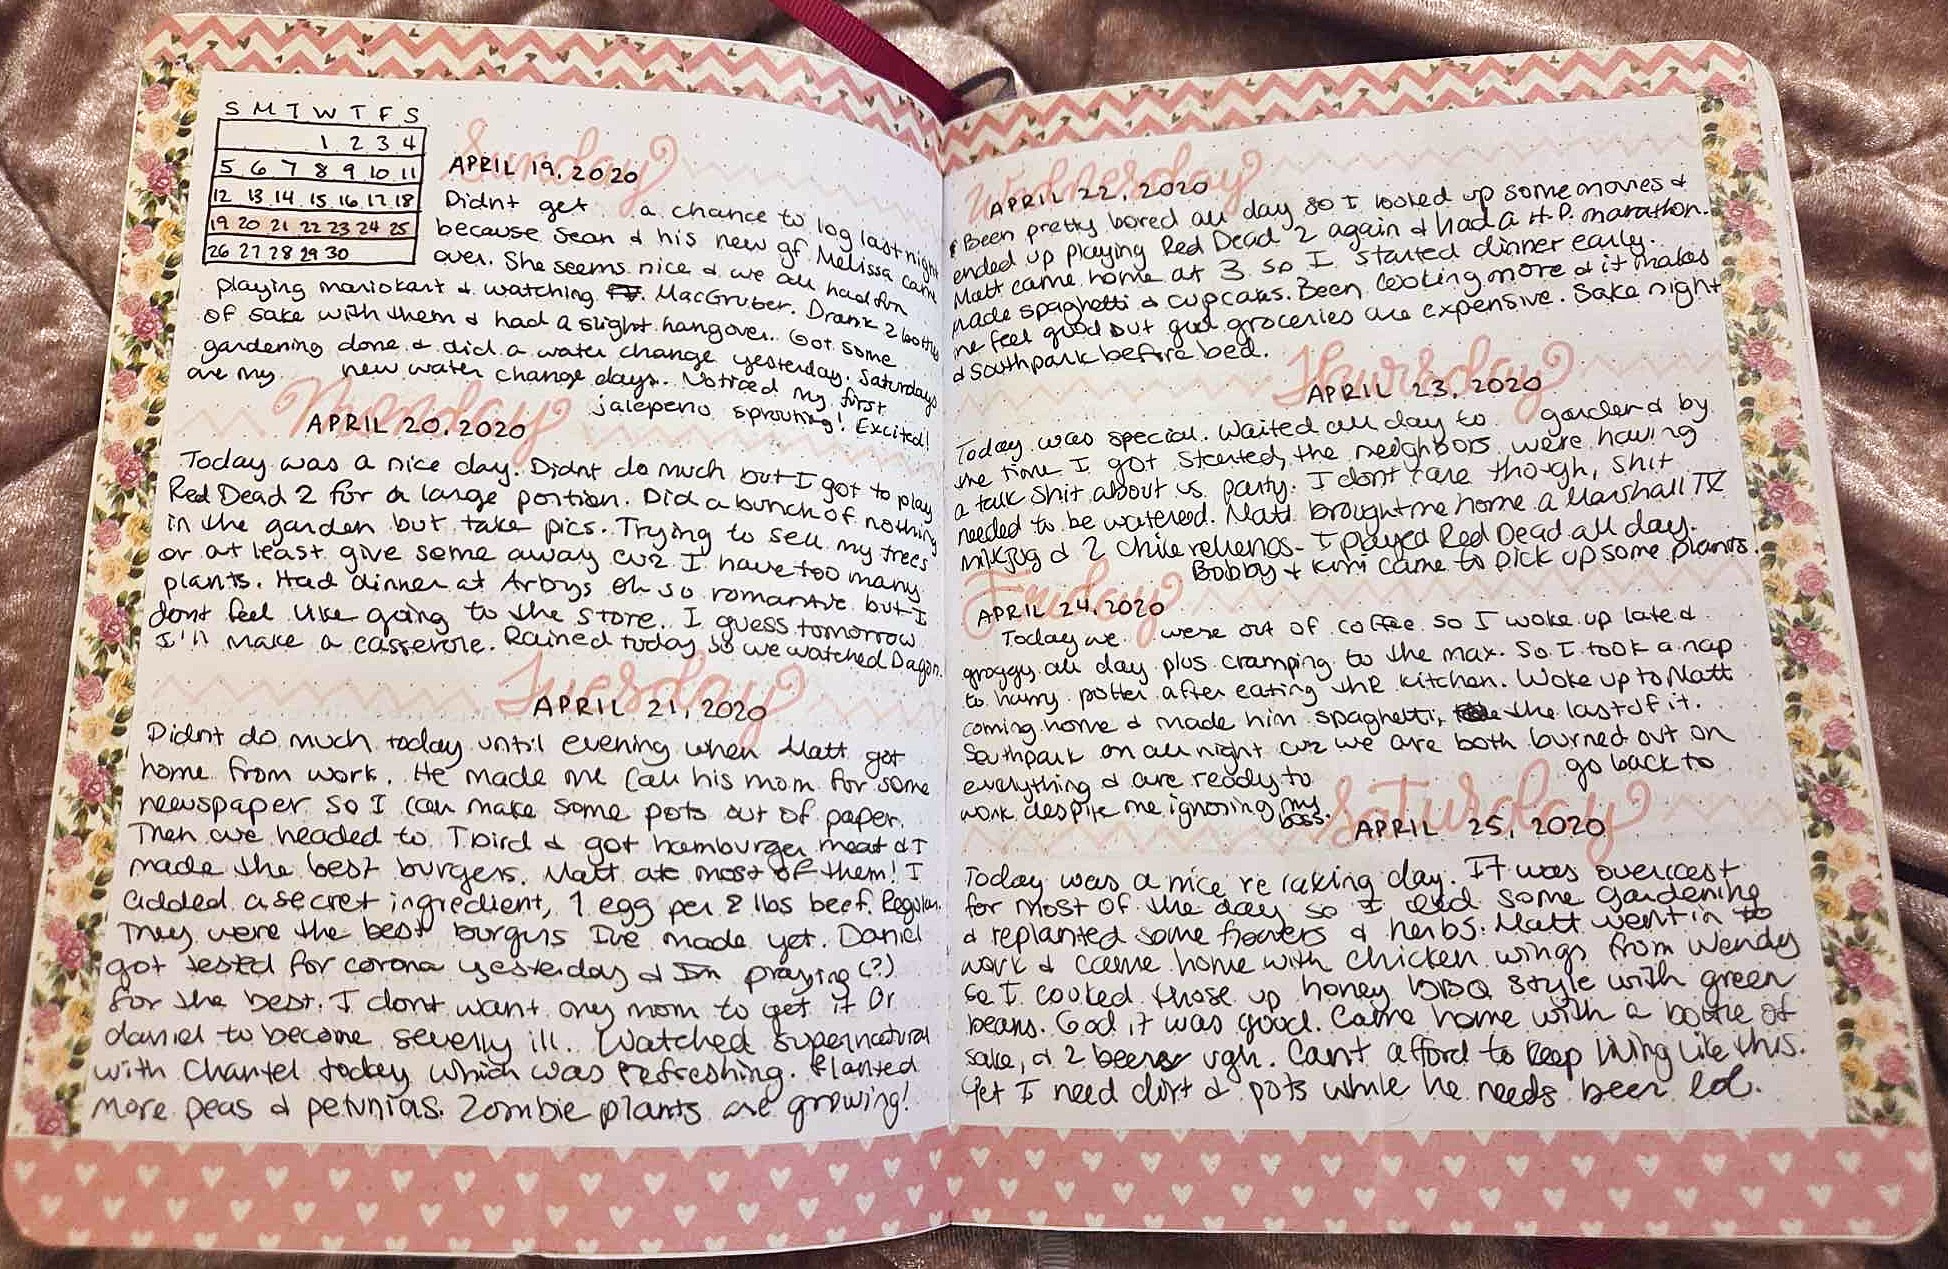 S M T W T F S
1 2 3 4
5 6 7 8 9 10 11
12 13 14 15 16 17 18
19 20 21 22 23 24 25
26 27 28 29 30
Sunday
APRIL 19, 2020
Didnt get a chance to log last night
because Sean & his new gf Melissa came
over. She seems nice & we all had fun
playing mariokart & watching MacGruber. Drank 2 bottles
of sake with them & had a slight hangover. Got some
gardening done & did a water change yesterday. Saturdays
are my new water change days. Noticed my first
jalepeno sprouting! Excited!
Monday
APRIL 20, 2020
Today was a nice day. Didnt do much but I got to play
Red Dead 2 for a large portion. Did a bunch of nothing
in the garden but take pics. Trying to sell my trees
or at least give some away cuz I have too many
plants. Had dinner at Arbys oh so romantic but I
dont feel like going to the store. I guess tomorrow
I'll make a casserole. Rained today so we watched Dagon.
Tuesday
APRIL 21, 2020
Didnt do much today until evening when Matt got
home from work. He made me call his mom for some
newspaper so I can make some pots out of paper.
Then we headed to Tbird & got hamburger meat & I
made the best burgers. Matt ate most of them! I
added a secret ingredient, 1 egg per 2 lbs beef. Regular.
They were the best burgers Ive made yet. Daniel
got tested for corona yesterday & Im praying (?)
for the best. I dont want my mom to get it or
daniel to become severly ill. Watched supernatural
with Chantel today which was refreshing. Planted
more peas & petunias. Zombie plants are growing!
Wednesday
APRIL 22, 2020
Been pretty bored all day so I looked up some movies &
ended up playing Red Dead 2 again & had a H.P. marathon.
Matt came home at 3 so I started dinner early.
Made spaghetti & cupcakes. Been cooking more & it makes
me feel good but gud groceries are expensive. Sake night
& Southpark before bed.
Thursday
APRIL 23, 2020
Today was special. Waited all day to garden & by
the time I got started, the neighbors were having
a talk shit about us party. I dont care though, shit
needed to be watered. Matt brought me home a Marshall TX
milkjug & 2 chile rellenos - I played Red Dead all day.
Bobby & Kim came to pick up some plants.
Friday
APRIL 24, 2020
Today we were out of coffee so I woke up late &
groggy all day plus cramping to the max. So I took a nap
to harry potter after eating the kitchen. Woke up to Matt
coming home & made him spaghetti, the last of it.
Southpark on all night cuz we are both burned out on
everything & are ready to go back to
work despite me ignoring my
boss.
Saturday
APRIL 25, 2020
Today was a nice relaxing day. It was overcast
for most of the day so I did some gardening
& replanted some flowers & herbs. Matt went in to
work & came home with chicken wings from Wendy
so I cooked those up honey BBQ style with green
beans. God it was good. Came home with a bottle of
sake, & 2 beers ugh. Cant afford to keep living like this.
Yet I need dirt & pots while he needs beer lol.